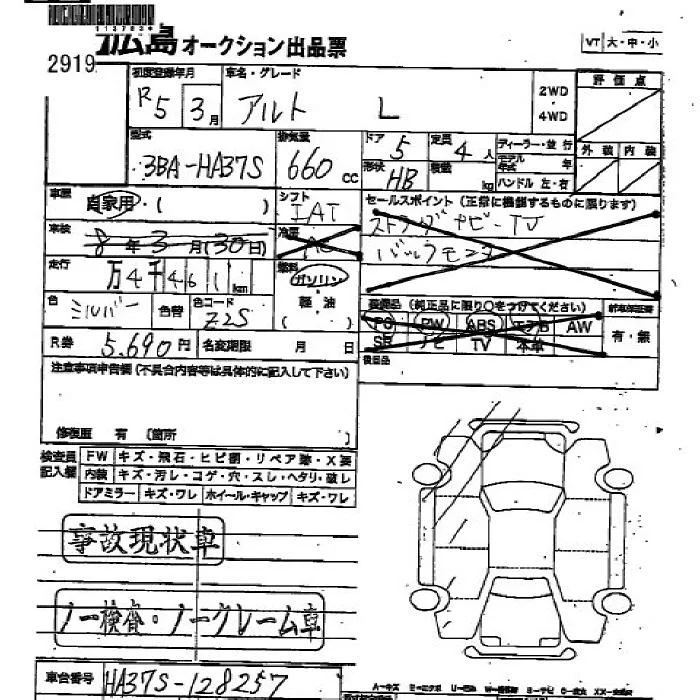 広島オークション出品票
VT 大・中・小
2919
初度登録年月
R5 3月
車名・グレード
アルト L
2WD
4WD
評価点
型式
3BA-HA37S
排気量
660 cc
ドア 5
形状 HB
定員 4人
積載 kg
ディーラー・並行
モデル年式 年
ハンドル 左・右
外装 内装
車歴
自家用・( )
シフト
IAT
セールスポイント (正常に機能するものに限ります)
バックモニタ
車検
8年3月(30日)
冷房
AC
走行
万4千461km
燃料
ガソリン
軽油
( )
色
シルバー
色替
色コード
Z2S
装備品 (純正品に限り○をつけてください)
PS PW ABS エアB AW
SR ナビ TV 本革
後日品
新車保証書
有・無
R券 5,690円
名変期限 月 日
注意事項申告欄 (不具合内容等は具体的に記入して下さい)
修復歴 有 〔箇所 〕
検査員記入欄
FW キズ・飛石・ヒビ割・リペア跡・X要
内装 キズ・汚レ・コゲ・穴・スレ・ヘタリ・破レ
ドアミラー キズ・ワレ ホイール・キャップ キズ・ワレ
事故現状車
ノー検査・ノークレーム車
車台番号 HA37S-128257